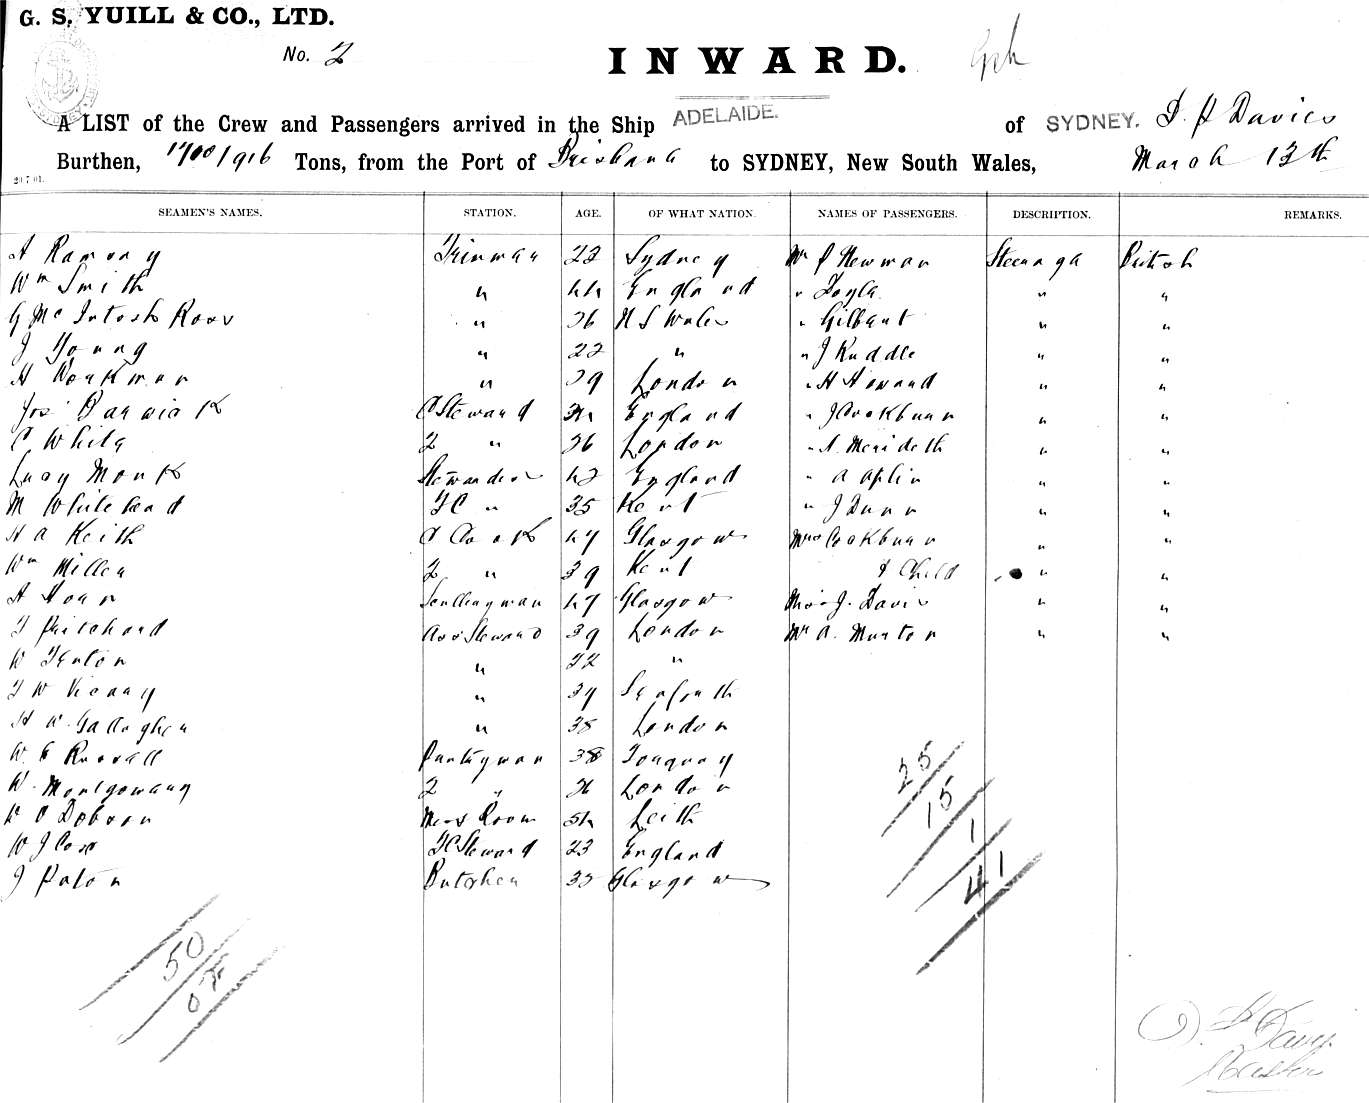 G. S. YUILL & CO., LTD.
No. 2
INWARD.
ADELAIDE.
A LIST of the Crew and Passengers arrived in the Ship of SYDNEY. Davies
Burthen, 1700/916 Tons, from the Port of Brisbane to SYDNEY, New South Wales, March 13th
20.7.01.
SEAMEN'S NAMES. STATION. AGE. OF WHAT NATION. NAMES OF PASSENGERS. DESCRIPTION. REMARKS.
A Ramsay Trimmer 22 Sydney Mr J Newman Steerage British
Wm Smith " 44 England " " "
G McIntosh Ross " 36 N S Wales " Gilbert " "
J Young " 22 " " J Ruddle " "
H Workman " 39 London " H Howard " "
Jos Barwick C Steward 34 England " J Cockburn " "
C White 2 " 36 London " A. Merideth " "
Lucy Monk Stewardess 42 England " A Aplin " "
M Whitehead FC " 35 Kent " J Dunn " "
H A Keith C Cook 47 Glasgow Mrs Cockburn " "
Wm Miller 2 " 39 Kent & Child " "
A Hoar Sculleryman 47 Glasgow Miss J. Davis " "
T Pritchard Ass Steward 39 London Mr A. Murton " "
W Fenton " 22 "
F W Vicary " 37 Seaforth
H W. Gallagher " 38 London
W. E Russell Pantryman 38 Torquay
W. Montgomery 2 " 26 London
W C Dobson Mess Room 54 Leith
W J Cox FC Steward 23 England
J Paton Butcher 35 Glasgow
25
15
1
41
50